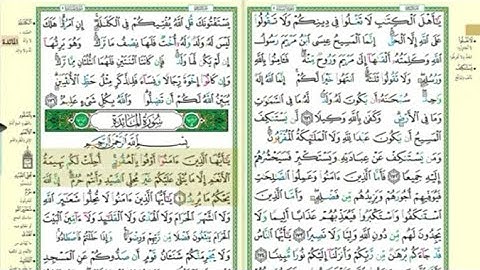 يَٰٓأَهْلَ ٱلْكِتَٰبِ لَا تَغْلُوا۟ فِى دِينِكُمْ وَلَا تَقُولُوا۟
عَلَى ٱللَّهِ إِلَّا ٱلْحَقَّ إِنَّمَا ٱلْمَسِيحُ عِيسَى ٱبْنُ مَرْيَمَ رَسُولُ
ٱللَّهِ وَكَلِمَتُهُۥٓ أَلْقَىٰهَآ إِلَىٰ مَرْيَمَ وَرُوحٌ مِّنْهُ فَـَٔامِنُوا۟ بِٱللَّهِ
وَرُسُلِهِۦ وَلَا تَقُولُوا۟ ثَلَٰثَةٌ ٱنتَهُوا۟ خَيْرًا لَّكُمْ إِنَّمَا ٱللَّهُ إِلَٰهٌ
وَٰحِدٌ سُبْحَٰنَهُۥٓ أَن يَكُونَ لَهُۥ وَلَدٌ لَّهُۥ مَا فِى ٱلسَّمَٰوَٰتِ
وَمَا فِى ٱلْأَرْضِ وَكَفَىٰ بِٱللَّهِ وَكِيلًا ١٧١ لَّن يَسْتَنكِفَ
ٱلْمَسِيحُ أَن يَكُونَ عَبْدًا لِّلَّهِ وَلَا ٱلْمَلَٰٓئِكَةُ ٱلْمُقَرَّبُونَ
وَمَن يَسْتَنكِفْ عَنْ عِبَادَتِهِۦ وَيَسْتَكْبِرْ فَسَيَحْشُرُهُمْ
إِلَيْهِ جَمِيعًا ١٧٢ فَأَمَّا ٱلَّذِينَ ءَامَنُوا۟ وَعَمِلُوا۟ ٱلصَّٰلِحَٰتِ
فَيُوَفِّيهِمْ أُجُورَهُمْ وَيَزِيدُهُم مِّن فَضْلِهِۦ وَأَمَّا ٱلَّذِينَ
ٱسْتَنكَفُوا۟ وَٱسْتَكْبَرُوا۟ فَيُعَذِّبُهُمْ عَذَابًا أَلِيمًا وَلَا
يَجِدُونَ لَهُم مِّن دُونِ ٱللَّهِ وَلِيًّا وَلَا نَصِيرًا ١٧٣ يَٰٓأَيُّهَا ٱلنَّاسُ
قَدْ جَآءَكُم بُرْهَٰنٌ مِّن رَّبِّكُمْ وَأَنزَلْنَآ إِلَيْكُمْ نُورًا مُّبِينًا ١٧٤
يَسْتَفْتُونَكَ قُلِ ٱللَّهُ يُفْتِيكُمْ فِى ٱلْكَلَٰلَةِ إِنِ ٱمْرُؤٌا۟ هَلَكَ
لَيْسَ لَهُۥ وَلَدٌ وَلَهُۥٓ أُخْتٌ فَلَهَا نِصْفُ مَا تَرَكَ وَهُوَ يَرِثُهَآ
إِن لَّمْ يَكُن لَّهَا وَلَدٌ فَإِن كَانَتَا ٱثْنَتَيْنِ فَلَهُمَا ٱلثُّلُثَانِ مِمَّا تَرَكَ
وَإِن كَانُوٓا۟ إِخْوَةً رِّجَالًا وَنِسَآءً فَلِلذَّكَرِ مِثْلُ حَظِّ ٱلْأُنثَيَيْنِ
يُبَيِّنُ ٱللَّهُ لَكُمْ أَن تَضِلُّوا۟ وَٱللَّهُ بِكُلِّ شَىْءٍ عَلِيمٌ ١٧٦
سُورَةُ المَائِدَةِ
بِسْمِ ٱللَّهِ ٱلرَّحْمَٰنِ ٱلرَّحِيمِ
يَٰٓأَيُّهَا ٱلَّذِينَ ءَامَنُوٓا۟ أَوْفُوا۟ بِٱلْعُقُودِ أُحِلَّتْ لَكُم بَهِيمَةُ
ٱلْأَنْعَٰمِ إِلَّا مَا يُتْلَىٰ عَلَيْكُمْ غَيْرَ مُحِلِّى ٱلصَّيْدِ وَأَنتُمْ حُرُمٌ إِنَّ ٱللَّهَ
يَحْكُمُ مَا يُرِيدُ ١ يَٰٓأَيُّهَا ٱلَّذِينَ ءَامَنُوا۟ لَا تُحِلُّوا۟ شَعَٰٓئِرَ ٱللَّهِ
وَلَا ٱلشَّهْرَ ٱلْحَرَامَ وَلَا ٱلْهَدْىَ وَلَا ٱلْقَلَٰٓئِدَ وَلَآ ءَآمِّينَ ٱلْبَيْتَ
ٱلْحَرَامَ يَبْتَغُونَ فَضْلًا مِّن رَّبِّهِمْ وَرِضْوَٰنًا وَإِذَا حَلَلْتُمْ فَٱصْطَادُوا۟
وَلَا يَجْرِمَنَّكُمْ شَنَـَٔانُ قَوْمٍ أَن صَدُّوكُمْ عَنِ ٱلْمَسْجِدِ